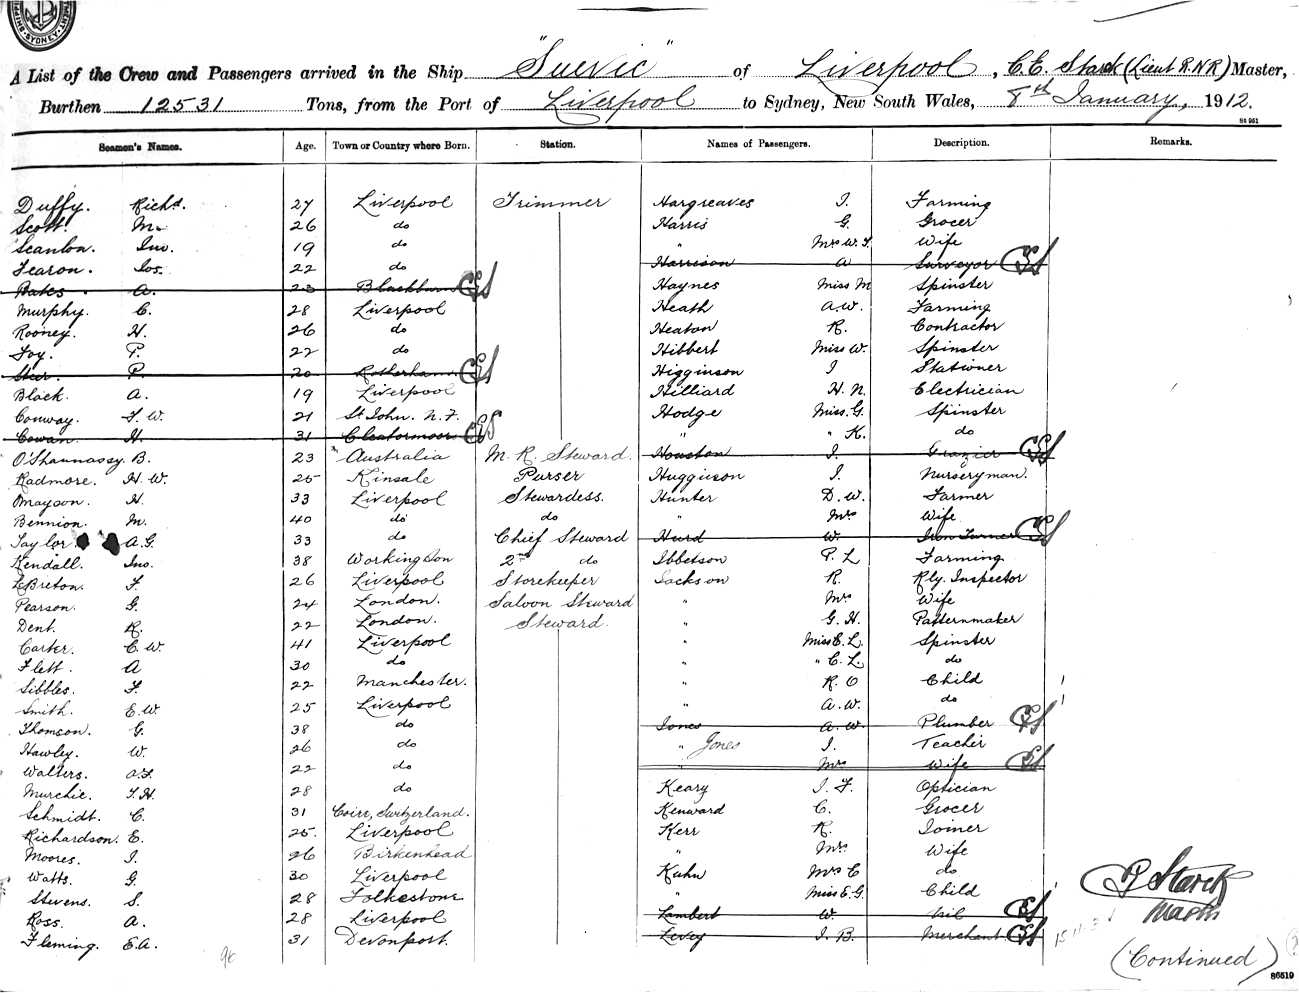 "Suevic" of Liverpool, C.E. Stark (Lieut R.N.R) Master,
A List of the Crew and Passengers arrived in the Ship
Burthen 12531 Tons, from the Port of Liverpool to Sydney, New South Wales, 8th January, 1912.
86 951
Seamen's Names. Age. Town or Country where Born. Station. Names of Passengers. Description. Remarks.
Duffy. Richd. 27 Liverpool Trimmer Hargreaves J. Farming
Scott. M. 26 do Harris G. Grocer
Scanlon. Jno. 19 do " Mrs W. J. Wife
Fearon. Jos. 22 do Harrison A Surveyor
Bates. A. 23 Blackburn Haynes Miss M Spinster
Murphy. C. 28 Liverpool Heath A.W. Farming
Rooney. H. 26 do Heaton R. Contractor
Foy. P. 22 do Hibbert Miss W. Spinster
P. 20 Rotherham Higginson J Stationer
Black. A. 19 Liverpool Hilliard H. N. Electrician
Conway. J. W. 21 St John. N.F. Hodge Miss. G. Spinster
Cowan. H. 31 Cleatormoor " " K. do
O'Shaunassy. B. 23 Australia M. R. Steward. Houston J. Grazier
Radmore. H. W. 25 Kinsale Purser Hugginson J. Nurseryman.
Mayson. H. 33 Liverpool Stewardess. Hunter D. W. Farmer
Bennion. M. 40 do do " Mrs Wife
Taylor A.G. 33 do Chief Steward Hurd W. Iron Turner
Kendall. Jno. 38 Workington 2nd do Ibbetson P. L Farming
LeBreton. F. 26 Liverpool Storekeeper Jackson R. Rly. Inspector
Pearson. G. 24 London. Saloon Steward " Mrs Wife
Dent. R. 22 London. Steward. " G. H. Patternmaker
Carter. E. W. 41 Liverpool " Miss E. L. Spinster
Flett. A 30 do " " C. L. do
Sibbles. F. 22 Manchester. " R. O Child
Smith. E.W. 25 Liverpool " A.W. do
Thomson. G. 38 do Jones A.W. Plumber
Hawley. W. 26 do " Jones J. Teacher
Walters. A.F. 22 do " Mrs Wife
Murchie. J.H. 28 do Keary J. F. Optician
Schmidt. C. 31 Coire, Switzerland. Kenward C. Grocer
Richardson. E. 25. Liverpool Kerr R. Joiner
Moores. J. 26 Birkenhead " Mrs. Wife
Watts. G. 30 Liverpool Kuhn Mrs C do
Stevens. S. 28 Folkestone " Miss E. G. Child
Ross. A. 28 Liverpool Lambert W. Nil
Fleming. E.A. 31 Devonport. Levey J. B. Merchant
Stark
Master
(Continued)
86519